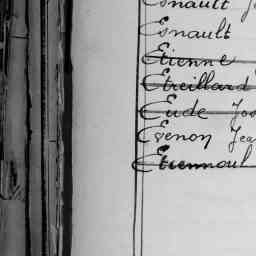 Esnault
Esnault
Etienne
Etreillard
Eude Jos
Evenon Jea
Etiennoul